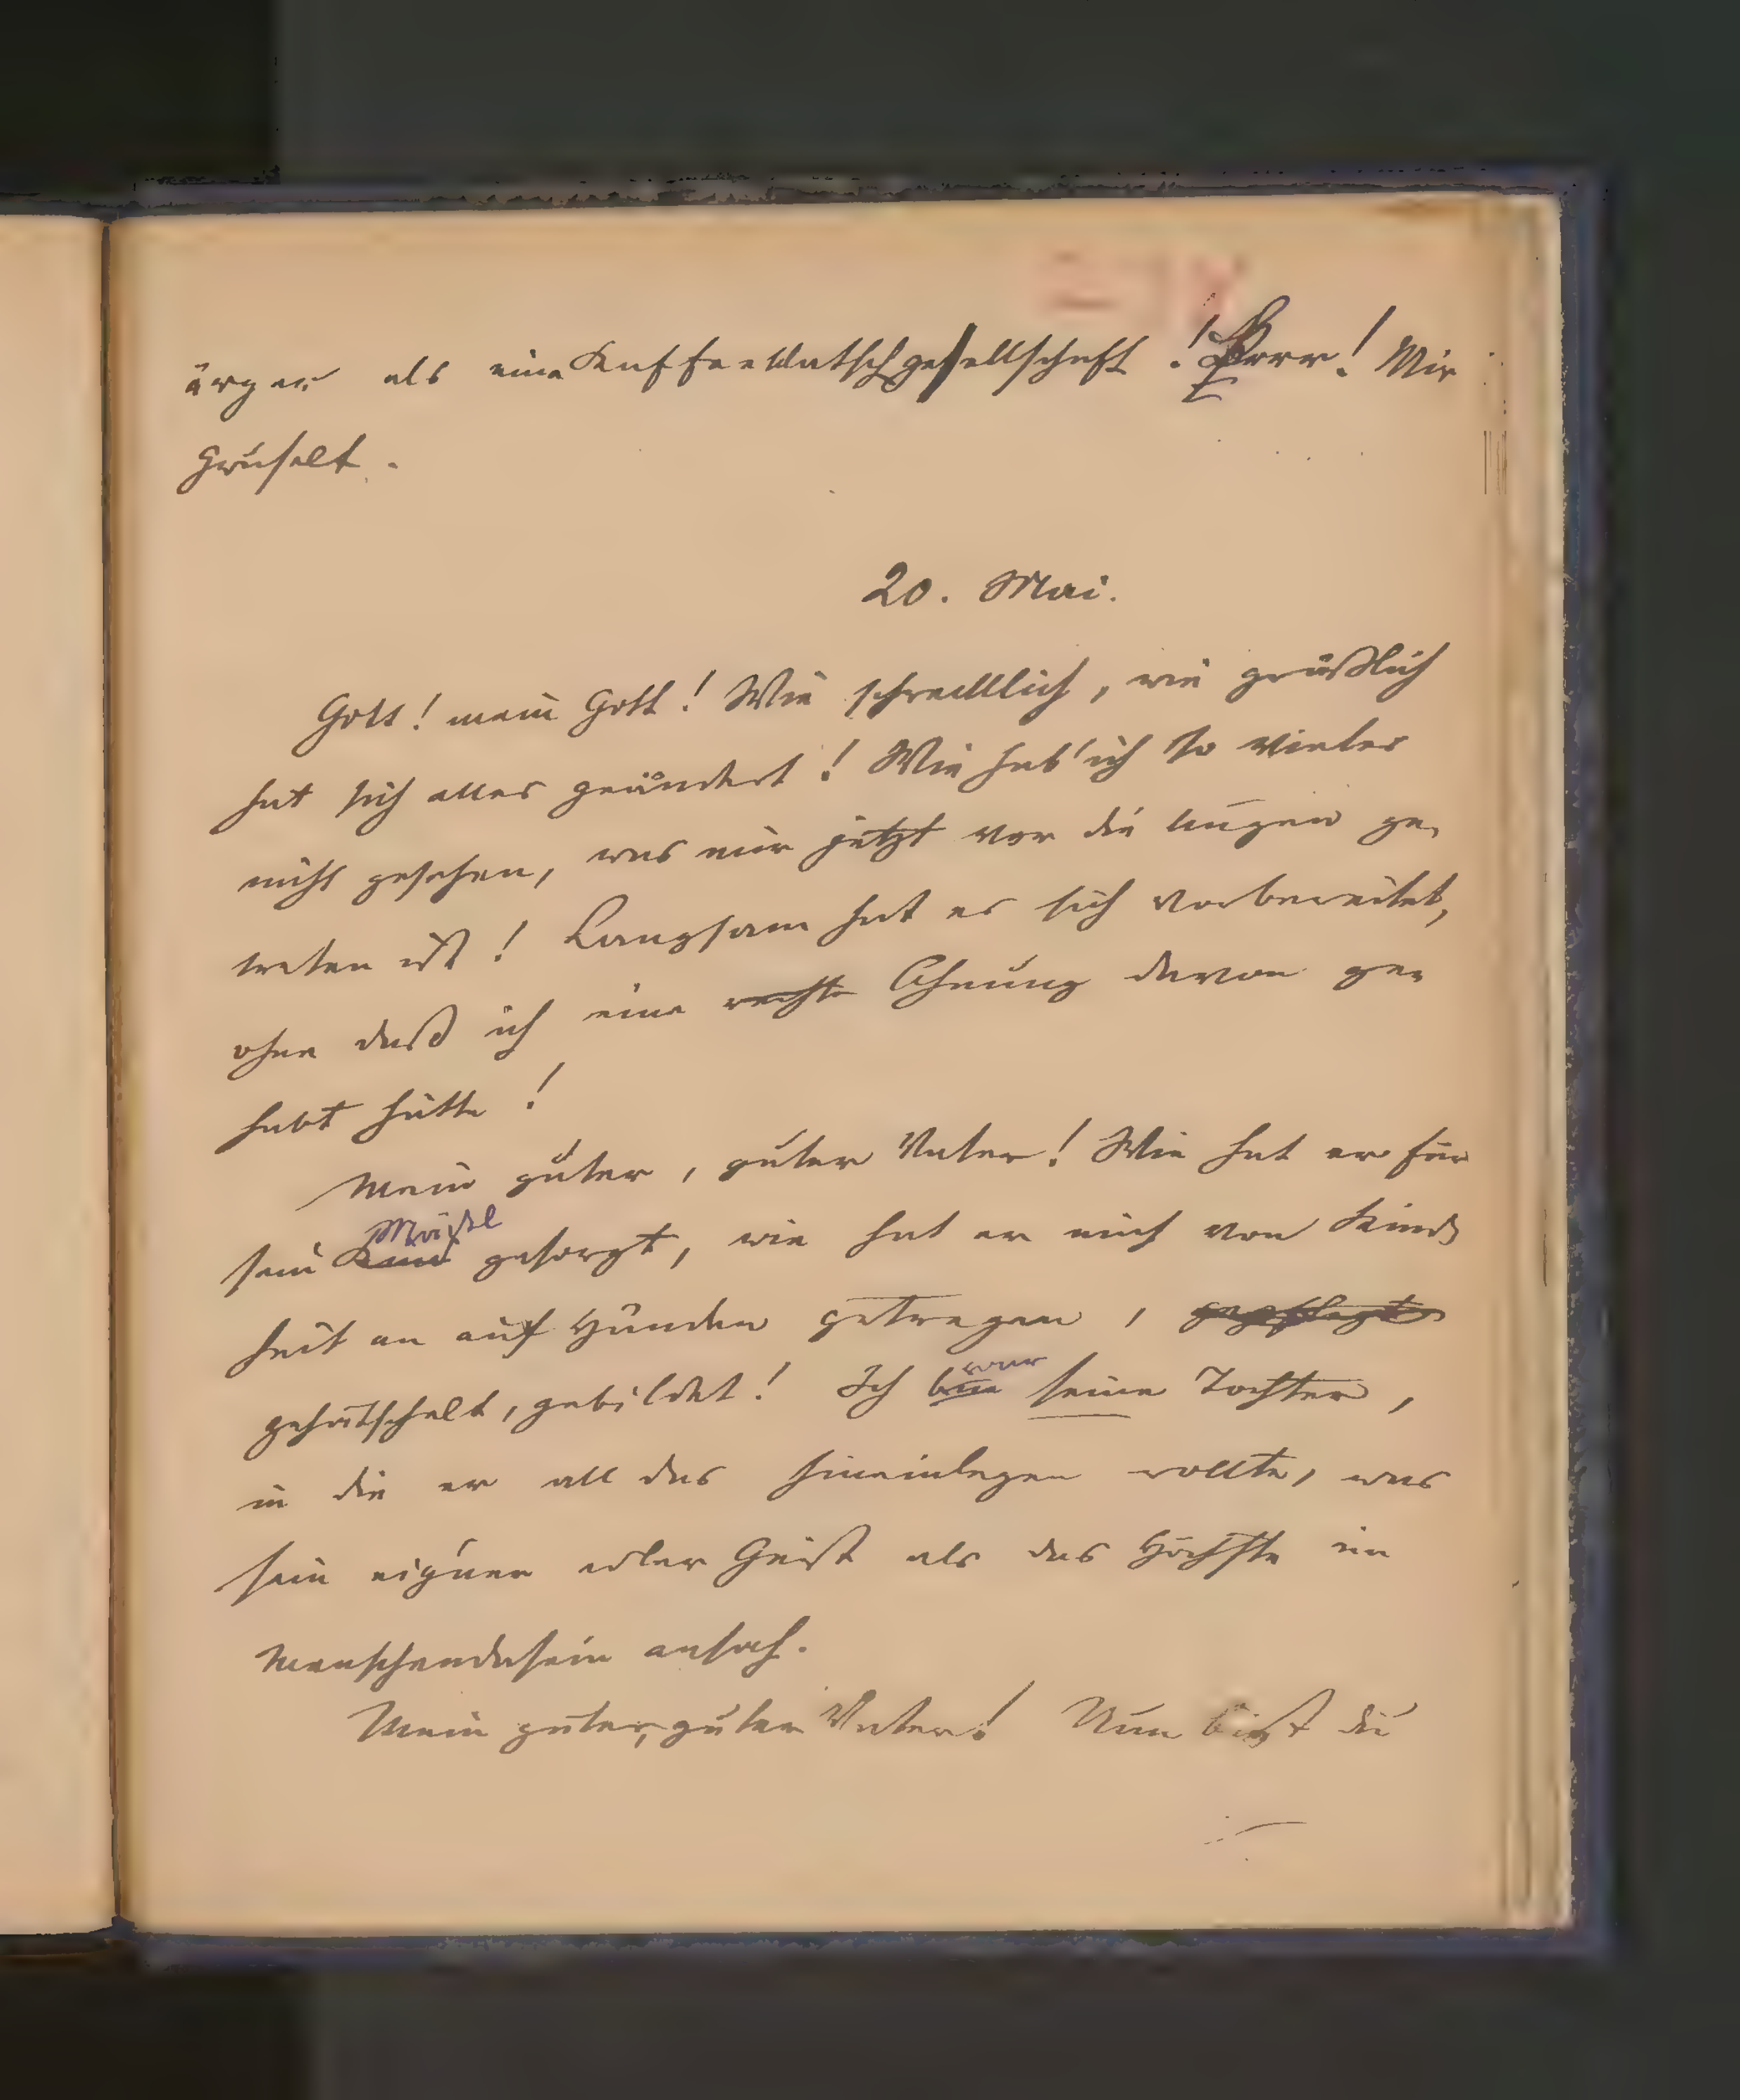 ärger als eine Kaffeeklatschgesellschaft! Brrr! Mir
gruselt.
20. Mai.
Gott! mein Gott! Wie schrecklich, wie gräßlich
hat sich alles geändert! Wie hab' ich so vieles
nicht gesehen, was mir jetzt vor die Augen ge-
treten ist! Langsam hat es sich vorbereitet,
ohne daß ich eine rechte Ahnung davon ge-
habt hätte!
Mein guter, guter Vater! Wie hat er für
Mädel
sein Kind gesorgt, wie hat er mich von Kind-
heit an auf Händen getragen, gepflegt
war
gehätschelt, gebildet! Ich bin seine Tochter,
in die er all das hineinlegen wollte, was
sein eigner edler Geist als das Höchste im
Menschendasein ansah.
Mein guter, guter Vater! Nun bist du